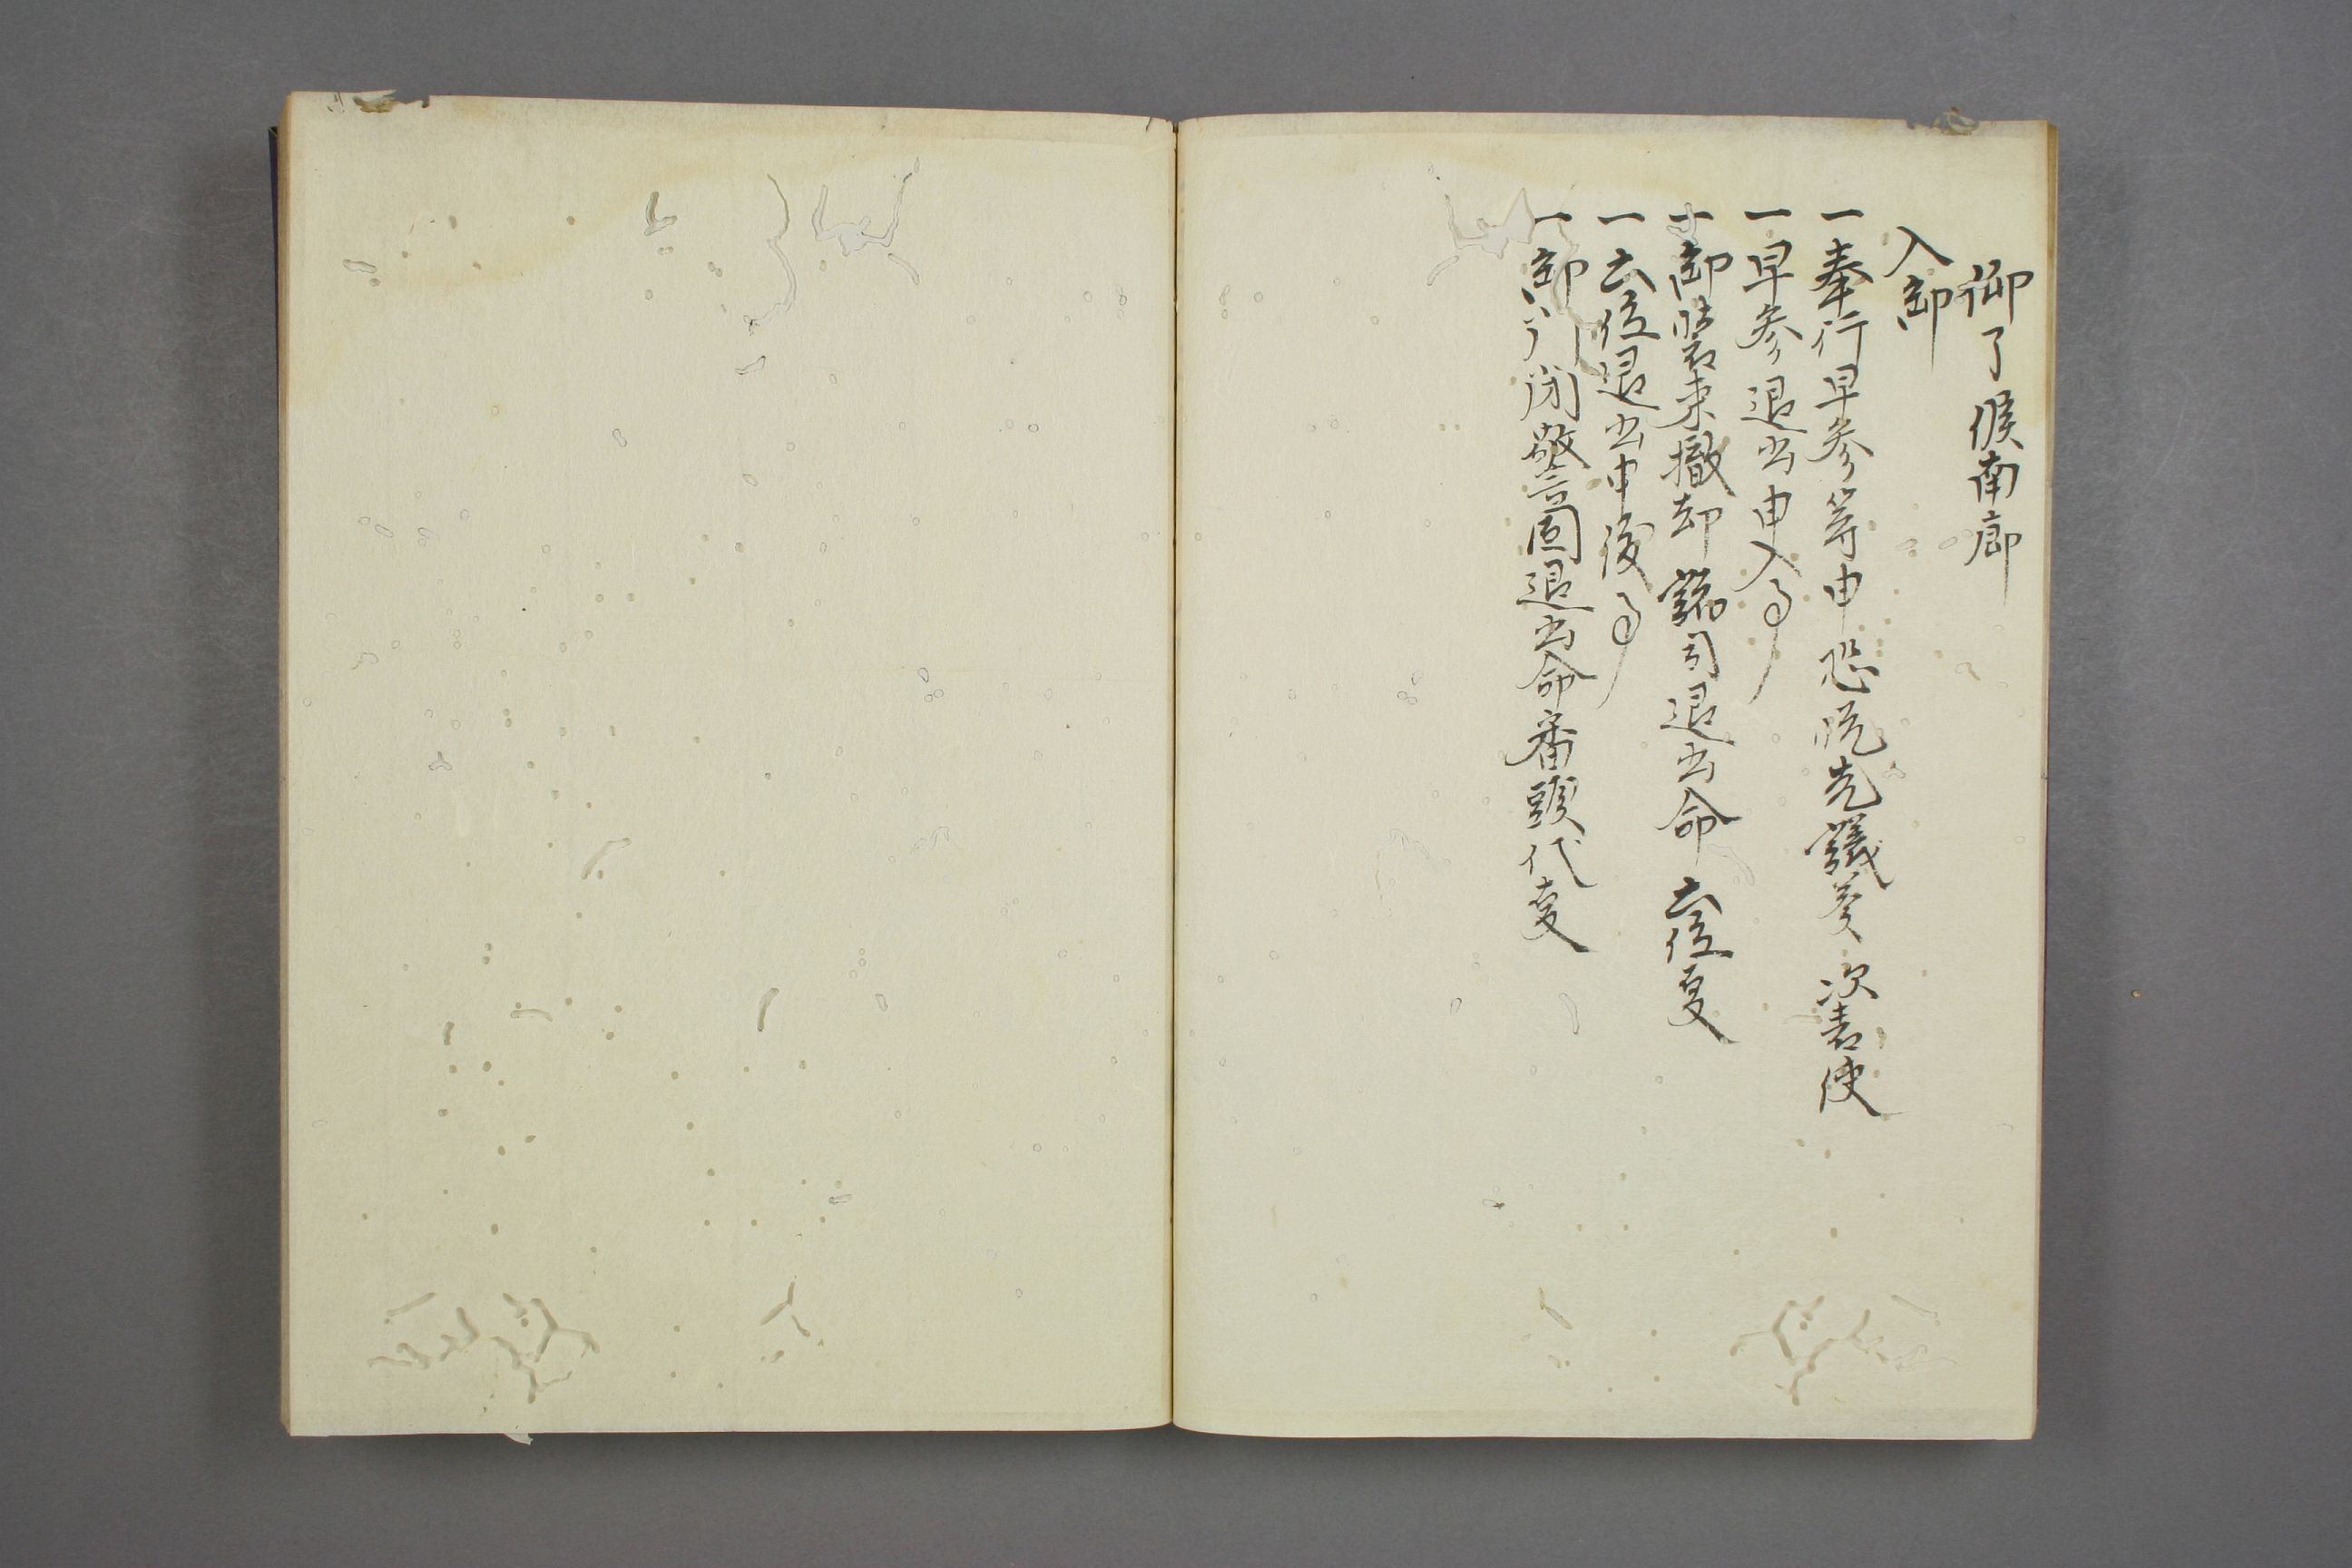 御了候南廊
入御
一奉行早参等申恐悦先議奏次表使
一早参退出申入了
一御装束撤却諸司退出命六位事
一六位退出申後了
一御門閉警固退出命番頭代事